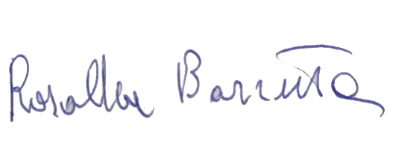 Rosalba Barretta